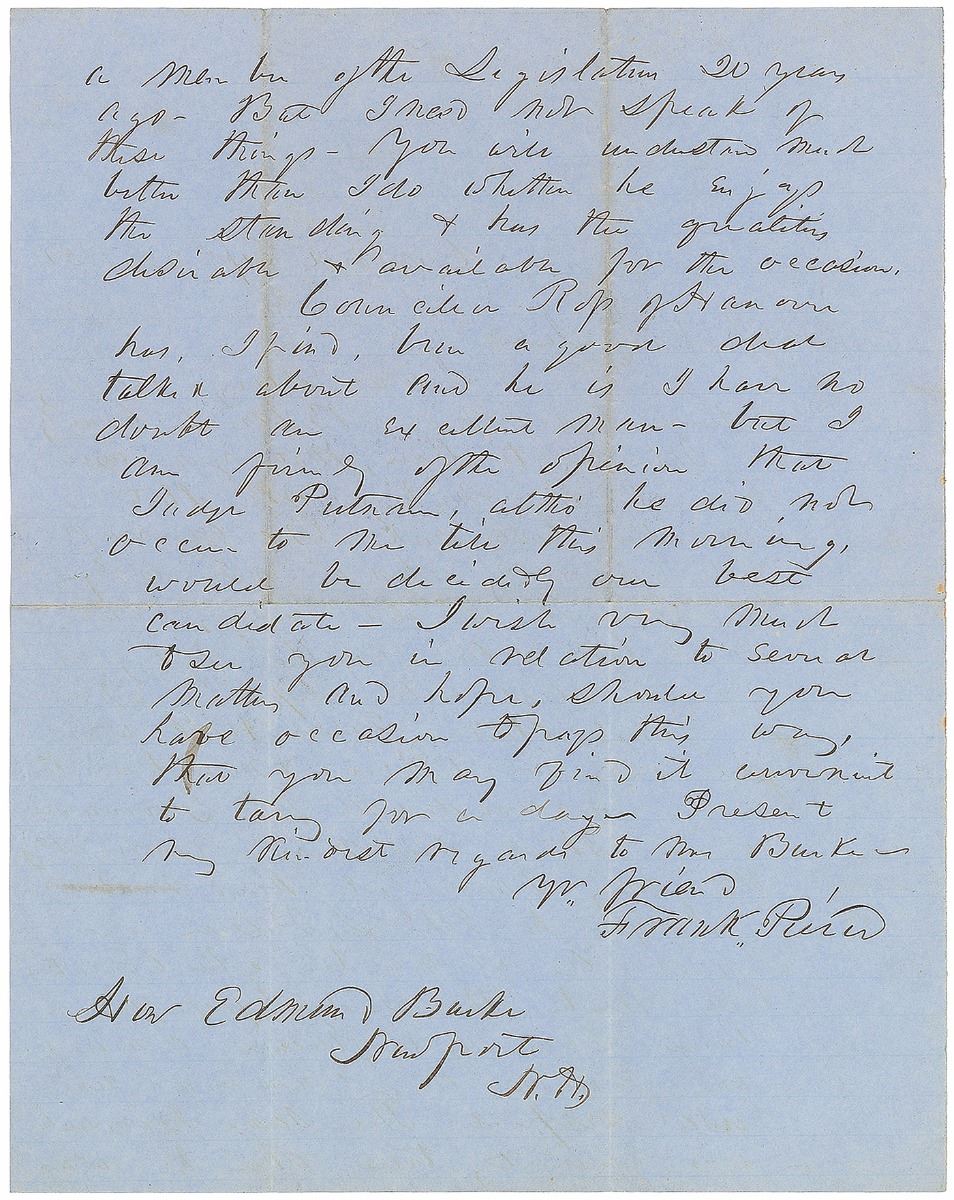 a member of the Legislature 20 years
ago - But I need not speak of
these things - You will understand much
better than I do whether he enjoys
the standing & has the qualities
desirable & available for the occasion.
Councillor Ross of Hanover
has, I find, been a good deal
talked about and he is I have no
doubt an excellent man - but I
am firmly of the opinion that
Judge Putnam, altho he did not
occur to me till this morning,
would be decidedly our best
candidate - I wish very much
to see you in relation to several
matters and hope, should you
have occasion to pass this way,
that you may find it convenient
to tarry for a day - Present
my kindest regards to Mrs Burke -
yr. friend
Frank. Pierce
Hon Edmund Burke
Newport
N.H.